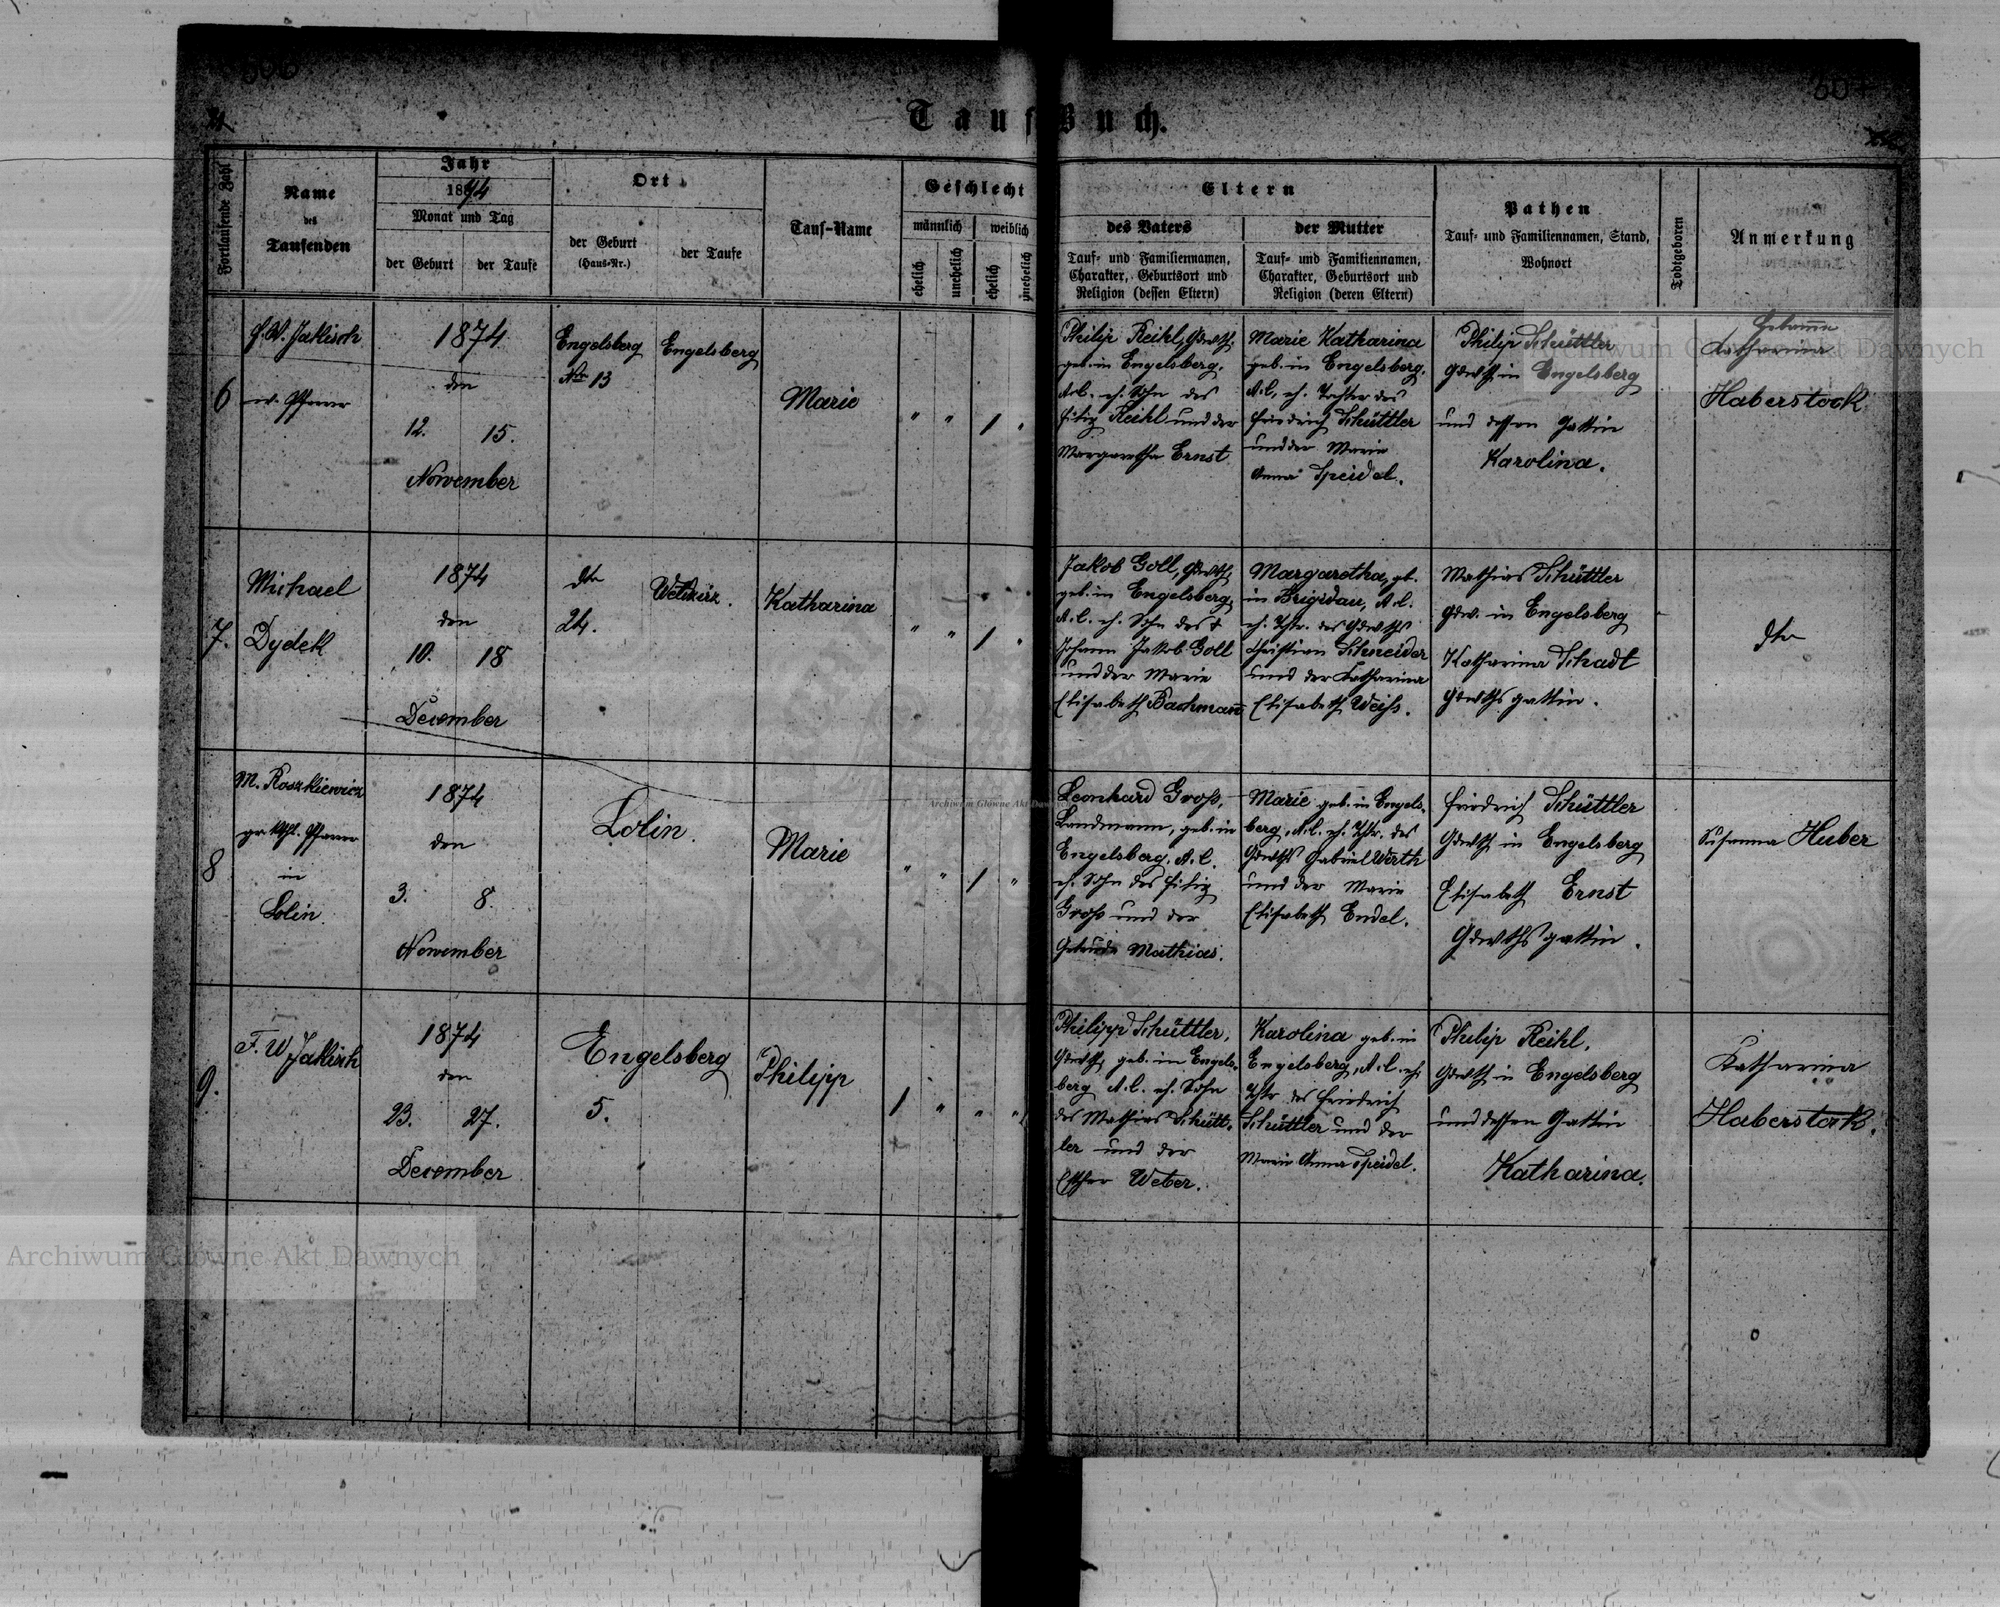 606
607
Tauf-Buch.
Fortlaufende Zahl
Name
des
Taufenden
Jahr
1874
Monat und Tag
der Geburt
der Taufe
Ort
der Geburt
(Haus-Nr.)
der Taufe
Tauf-Name
Geschlecht
männlich
weiblich
ehelich
unehelich
ehelich
unehelich
Eltern
des Vaters
Tauf- und Familiennamen,
Charakter, Geburtsort und
Religion (dessen Eltern)
der Mutter
Tauf- und Familiennamen,
Charakter, Geburtsort und
Religion (deren Eltern)
Pathen
Tauf- und Familiennamen, Stand,
Wohnort
Todtgeboren
Anmerkung
6
F. W. Jakisch
ev. Pfarrer
1874
den
12. 15.
November
Engelsberg
Nr 13
Engelsberg
Marie
" " 1 "
Philip Reihl, Gdwth,
geb. in Engelsberg,
A.C. eh. Sohn des
Filip Reihl und der
Margaretha Ernst
Marie Katharina
geb. in Engelsberg,
A.C. eh. Tochter des
Friedrich Schüttler
und der Marie
Anna Speidel.
Philip Schüttler
Gdwth in Engelsberg
und dessen Gattin
Karolina.
Hebamme
Katharina
Haberstock
7.
Michael
Dydek
1874
den
10. 18
December
dto
24.
Weldzirz.
Katharina
" " 1 "
Jakob Goll, Gdwth,
geb. in Engelsberg,
A.C. eh. Sohn des †
Johann Jakob Goll
und der Marie
Elisabeth Bachmann
Margaretha, gb.
in Brigidau, A.C.
eh. Tchtr. des Gdwths
Christian Schneider
und der Katharina
Elisabeth Weiss.
Mathias Schüttler
Gdw. in Engelsberg
Katharina Schadt
Gdwthsgattin.
dto
8
M. Roszkiewicz
gr. kthl. Pfarrer
in
Lolin
1874
den
3. 8.
November
Lolin.
Marie
" " 1 "
Leonhard Groß,
Landmann, geb. in
Engelsberg, A.C.
eh. Sohn des Filip
Groß und der
Gertrude Mathias.
Marie geb. in Engels-
berg, A.C. eh. Tchtr. des
Gdwths Gabriel Wirth
und der Marie
Elisabeth Endel.
Friedrich Schüttler
Gdwth in Engelsberg
Elisabeth Ernst
Gdwthsgattin.
Susanna Huber
9.
F. W Jakisch
1874
den
23. 27.
December
Engelsberg
5.
Philipp
1 " " "
Philipp Schüttler,
Gdwth, geb. in Engels-
berg A.C. eh. Sohn
des Mathias Schütt-
ler und der
Esther Weber.
Karolina geb. in
Engelsberg, A.C. eh.
Tchtr des Friedrich
Schüttler und der
Marie Anna Speidel.
Philip Reihl,
Gdwth in Engelsberg
und dessen Gattin
Katharina.
Katharina
Haberstock.
Archiwum Główne Akt Dawnych
Archiwum Główne Akt Dawnych
Archiwum Główne Akt Dawnych